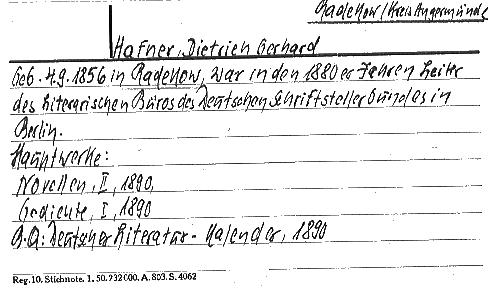 Radekow/Kreis Angermünde
Hafner, Dietrich Gerhard
Geb. 4.9.1856 in Radekow, war in den 1880er Jahren Leiter
des Literarischen Büros des Deutschen Schriftstellerbundes in
Berlin.
Hauptwerke:
Novellen, II, 1890,
Gedichte, I, 1890
B.Q.: Deutscher Literatur-Kalender, 1890
Reg. 10. Stichnote. 1. 50. 732 000. A. 803. S. 4062